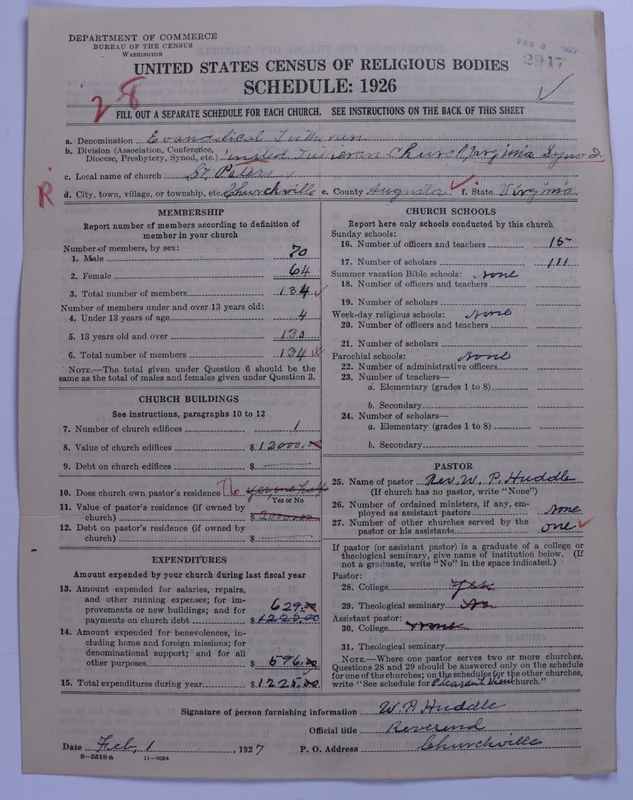 DEPARTMENT OF COMMERCE
BUREAU OF THE CENSUS
WASHINGTON
2947
UNITED STATES CENSUS OF RELIGIOUS BODIES
SCHEDULE: 1926
28
FILL OUT A SEPARATE SCHEDULE FOR EACH CHURCH. SEE INSTRUCTIONS ON THE BACK OF THIS SHEET
a. Denomination Evangelical Lutheran
b. Division (Association, Conference, Diocese, Presbytery, Synod, etc.) United Lutheran Church, Virginia Synod
c. Local name of church St. Peters
R.
d. City, town, village, or township, etc. Churchville e. County Augusta f. State Virginia
MEMBERSHIP
Report number of members according to definition of
member in your church
Number of members, by sex:
1. Male 70
2. Female 64
3. Total number of members 134
Number of members under and over 13 years old:
4. Under 13 years of age 4
5. 13 years old and over 130
6. Total number of members 134
NOTE.—The total given under Question 6 should be the
same as the total of males and females given under Question 3.
CHURCH BUILDINGS
See instructions, paragraphs 10 to 12
7. Number of church edifices 1
8. Value of church edifices $ 12000.
9. Debt on church edifices $
10. Does church own pastor's residence
Yes or No
11. Value of pastor's residence (if owned by
church) $ 2000.00
12. Debt on pastor's residence (if owned by
church) $
EXPENDITURES
Amount expended by your church during last fiscal year
13. Amount expended for salaries, repairs,
and other running expenses; for im-
provements or new buildings; and for 629.00
payments on church debt $ 1225.00
14. Amount expended for benevolences, in-
cluding home and foreign missions; for
denominational support; and for all
other purposes $ 596.00
15. Total expenditures during year $ 1225.00
CHURCH SCHOOLS
Report here only schools conducted by this church
Sunday schools:
16. Number of officers and teachers 15
17. Number of scholars 111
Summer vacation Bible schools: None
18. Number of officers and teachers
19. Number of scholars
Week-day religious schools: None
20. Number of officers and teachers
21. Number of scholars
Parochial schools: None
22. Number of administrative officers
23. Number of teachers—
a. Elementary (grades 1 to 8)
b. Secondary
24. Number of scholars—
a. Elementary (grades 1 to 8)
b. Secondary
PASTOR
25. Name of pastor Rev. W. P. Huddle
(If church has no pastor, write "None")
26. Number of ordained ministers, if any, em-
ployed as assistant pastors None
27. Number of other churches served by the
pastor or his assistants one
If pastor (or assistant pastor) is a graduate of a college or
theological seminary, give name of institution below. (If
not a graduate, write "No" in the space indicated.)
Pastor:
28. College Yes
29. Theological seminary No
Assistant pastor:
30. College None
31. Theological seminary
NOTE.—Where one pastor serves two or more churches,
Questions 28 and 29 should be answered only on the schedule
for one of the churches; on the schedules for the other churches,
write "See schedule for Pleasant View church."
Signature of person furnishing information W. P. Huddle
Official title Reverend
Date Feb. 1, 1927 P. O. Address Churchville
8—5518a 11—9034